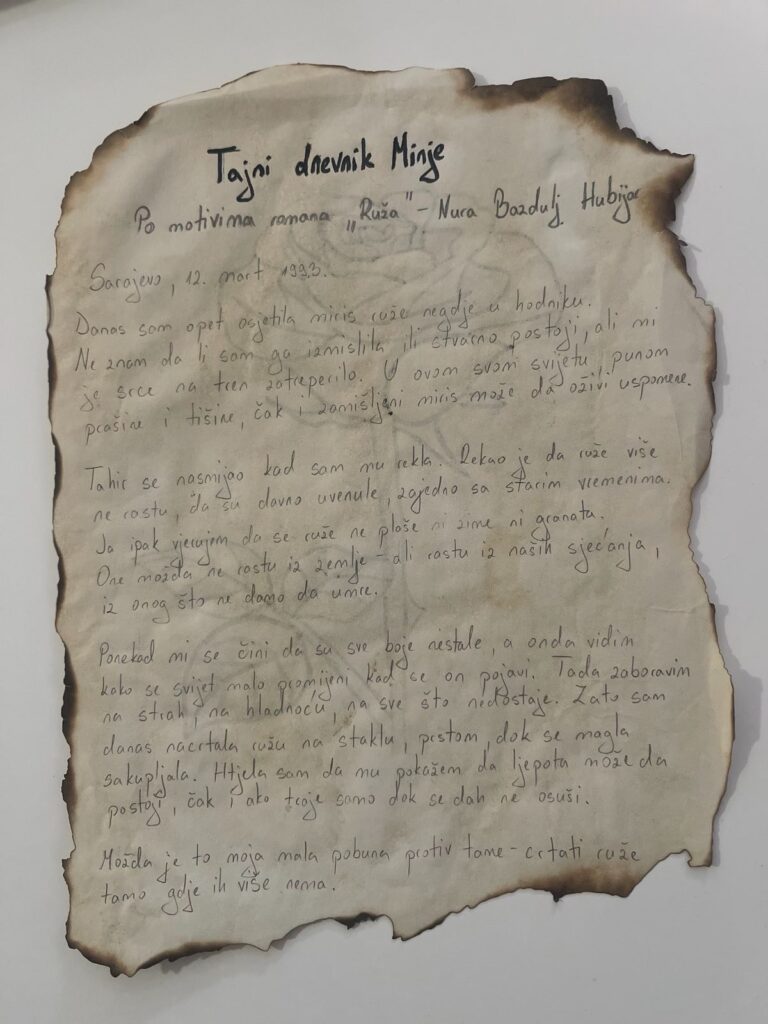 Tajni dnevnik Minje
Po motivima romana "Ruža" - Nura Bazdulj Hubijar
Sarajevo, 12. mart 1993.
Danas sam opet osjetila miris ruže negdje u hodniku.
Ne znam da li sam ga izmislila ili stvarno postoji, ali mi
je srce na tren zatreperilo. U ovom svom svijetu punom
prašine i tišine, čak i zamišljeni miris može da oživi uspomene.
Tahir se nasmijao kad sam mu rekla. Rekao je da ruže više
ne rastu, da su davno uvenule, zajedno sa starim vremenima.
Ja ipak vjerujem da se ruže ne plaše ni zime ni granata.
One možda ne rastu iz zemlje - ali rastu iz naših sjećanja,
iz onog što ne damo da umre.
Ponekad mi se čini da su sve boje nestale, a onda vidim
kako se svijet malo promijeni kad se on pojavi. Tada zaboravim
na strah, na hladnoću, na sve što nedostaje. Zato sam
danas nacrtala ružu na staklu, prstom, dok se magla
sakupljala. Htjela sam da mu pokažem da ljepota može da
postoji, čak i ako traje samo dok se dah ne osuši.
Možda je to moja mala pobuna protiv tame - crtati ruže
tamo gdje ih više nema.